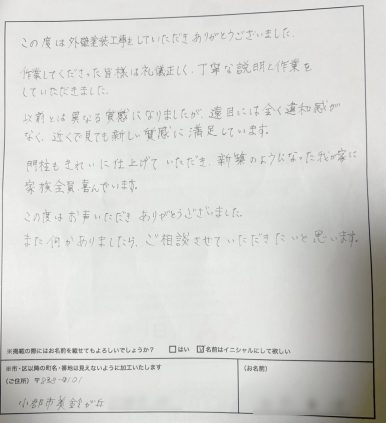 この度は外壁塗装工事をしていただきありがとうございました。
作業してくださった皆様は礼儀正しく、丁寧な説明と作業を
していただきました。
以前とは異なる質感になりましたが、遠目には全く違和感が
なく、近くで見ても新しい質感に満足しています。
門柱もきれいに仕上げていただき、新築のようになった我が家に
家族全員喜んでいます。
この度はお声いただきありがとうございました。
また何かありましたら、ご相談させていただきたいと思います。
※掲載の際にはお名前を載せてもよろしいでしょうか? □はい ☑名前はイニシャルにして欲しい
※市・区以降の町名・番地は見えないように加工いたします
(ご住所) 〒838-0101
(お名前)
小郡市美鈴が丘